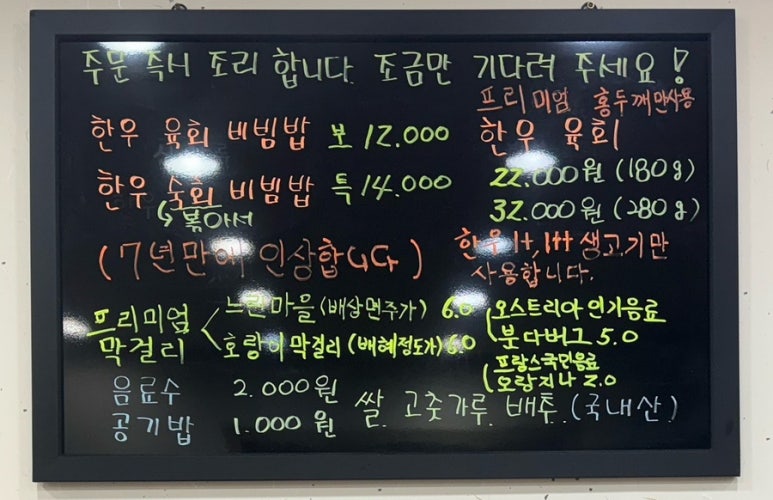 주문 즉시 조리 합니다. 조금만 기다려 주세요!
한우 육회 비빔밥 보 12.000
한우 숙회 비빔밥 특 14.000
↳볶아서
(7년만에 인상합니다)
프리미엄 홍두깨만사용
한우 육회
22.000원 (180g)
32.000원 (280g)
한우 1+, 1++ 생고기만
사용합니다.
프리미엄
막걸리
느린마을 (배상면주가) 6.0
호랑이 막걸리 (배혜정도가) 6.0
오스트리아 인기음료
분다버그 5.0
프랑스국민음료
오랑지나 2.0
음료수 2.000원
공기밥 1.000원
쌀. 고춧가루. 배추. (국내산)